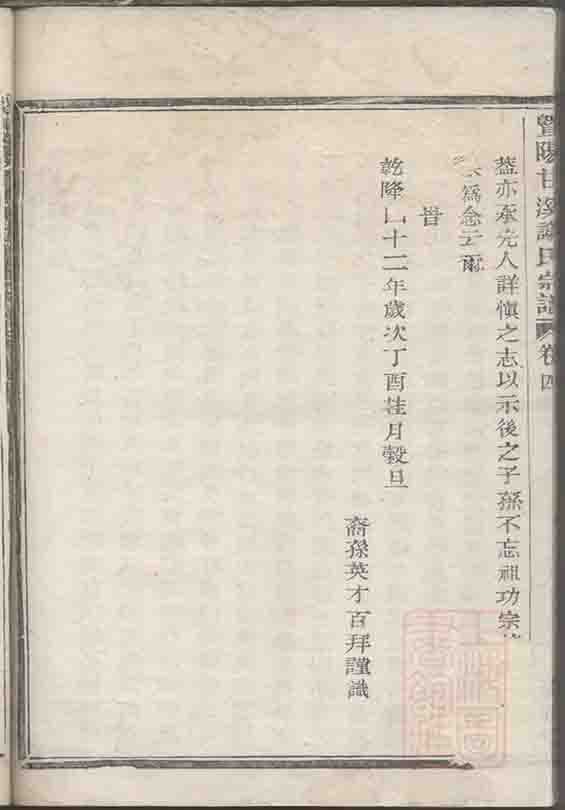 暨陽甘溪謝氏宗譜 卷四
蓋亦承先人詳慎之志以示後之子孫不忘祖功宗
為念云爾
旹
乾隆四十二年歲次丁酉桂月穀旦
裔孫英才百拜謹識
上海圖書館藏